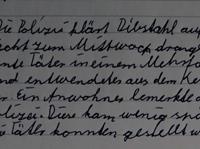 ie Polizei klärt Diebstahl auf
cht zum Mittwoch drang
te Täter in einem Mehrfa
nd entwendetes aus dem Ke
. Ein Anwohner bemerkte d
olizei. Diese kam wenig spä
e Täter konnten gestellt w